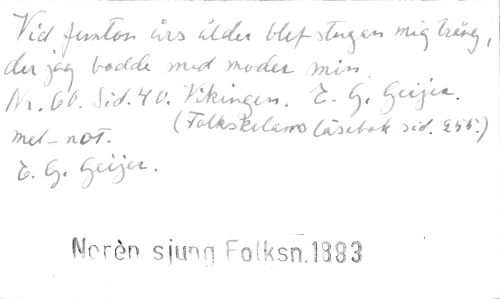 Vid femton års ålder blef stugan mig trång,
der jag bodde med moder min.
Nr. 60. Sid. 40. Vikingen. E. G. Geijer.
(Folkskolans läsebok sid. 255.)
mel-not.
E. G. Geijer.
Norèn sjung Folksn. 1883